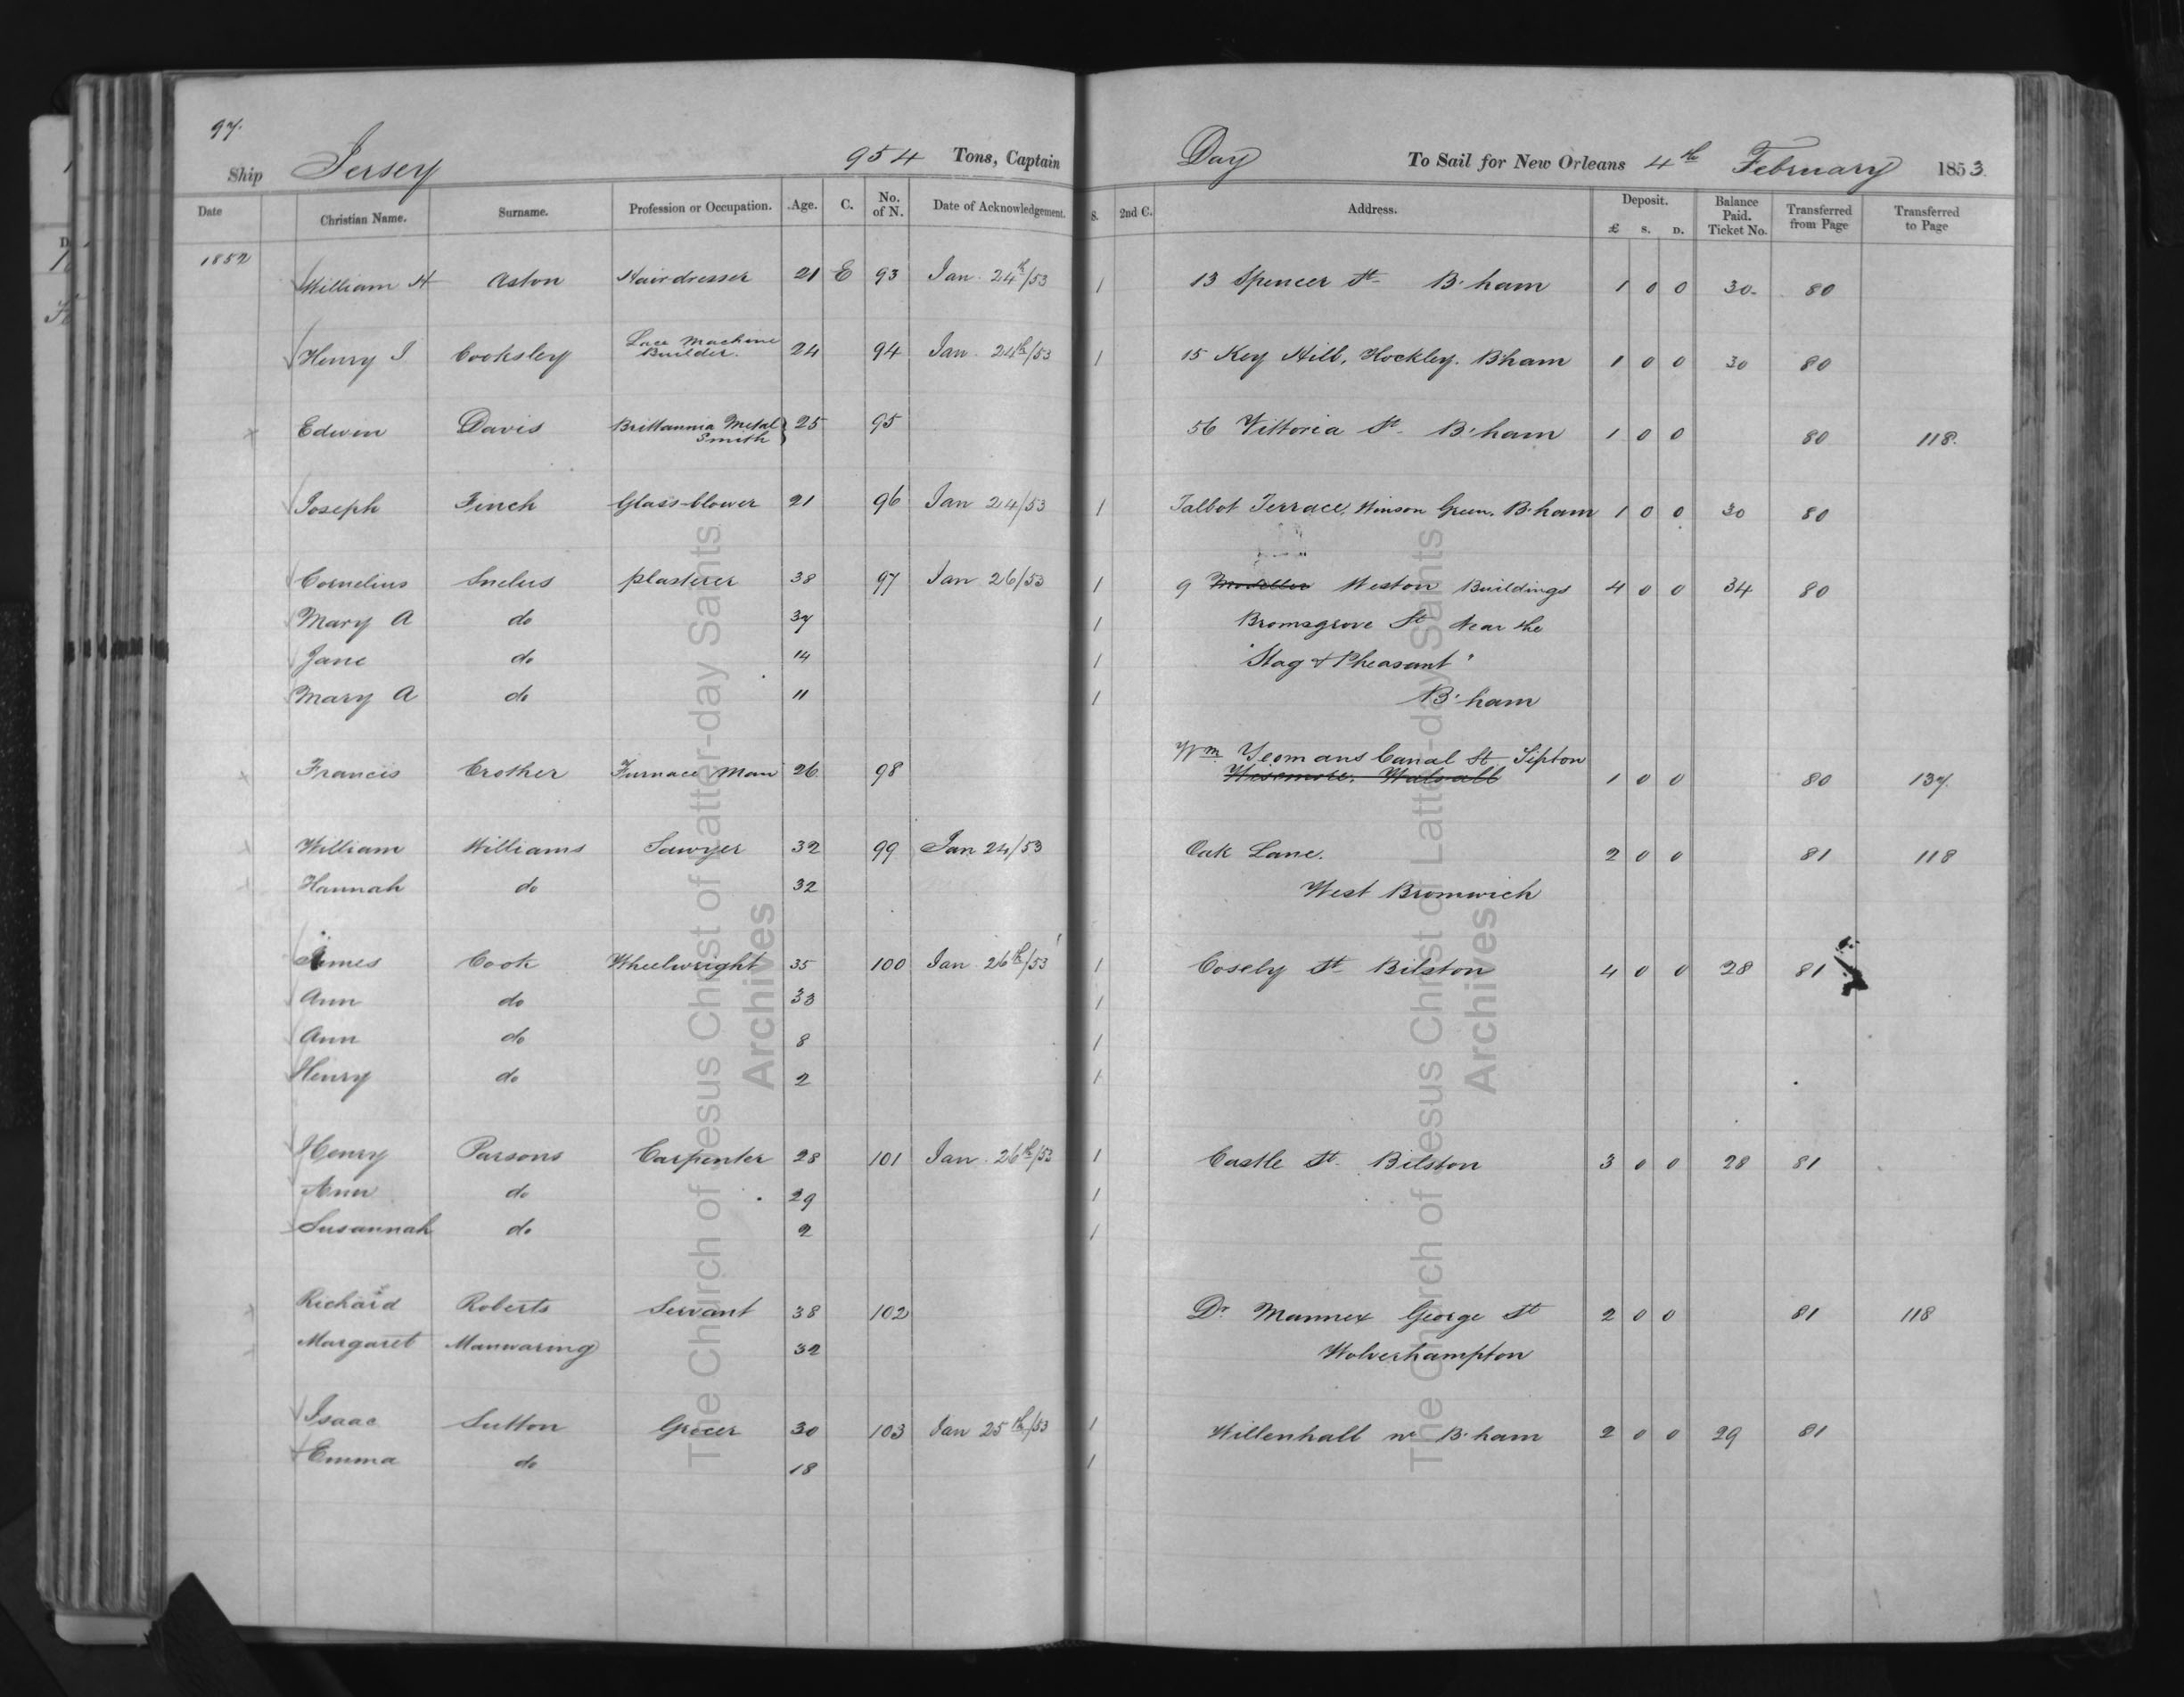 97.
Ship Jersey 954 Tons, Captain Day To Sail for New Orleans 4th February 1853.
Date Christian Name. Surname. Profession or Occupation. Age. C. No. of N. Date of Acknowledgement. S. 2nd C. Address. Deposit. £ S. D. Balance Paid. Ticket No. Transferred from Page Transferred to Page
1852
William H Aston Hairdresser 21 E 93 Jan. 24th/53 1 13 Spencer St B'ham 1 0 0 30. 80
Lace Machine
Henry J Cooksley Builder. 24 94 Jan. 24th/53 1 15 Key Hill, Hockley. B'ham 1 0 0 30 80
Edwin Davis Brittannia Metal 25 95 56 Vittoria St B'ham 1 0 0 80 118.
Smith
Joseph Finch Glass-blower 21 96 Jan 24/53 1 Talbot Terrace, Winson Green. B'ham 1 0 0 30 80
Cornelius Snelus plasterer 38 97 Jan 26/53 1 9 Weston Buildings 4 0 0 34 80
Mary A do 37 1 Bromsgrove St Near the
Jane do 14 1 "Stag & Pheasant"
Mary A do 11 1 B'ham
Wm Yeomans Canal St Tipton
Francis Crother Furnace Man 26 98 Wisemore. Walsall 1 0 0 80 137.
William Williams Sawyer 32 99 Jan 24/53 Oak Lane. 2 0 0 81 118
Hannah do 32 West Bromwich
James Cook Wheelwright 35 100 Jan. 26th/53 1 Cosely St Bilston 4 0 0 28 81
Ann do 33 1
Ann do 8 1
Henry do 2 1
Henry Parsons Carpenter 28 101 Jan. 26th/53 1 Castle St. Bilston 3 0 0 28 81
Ann do 29 1
Susannah do 2 1
Richard Roberts Servant 38 102 Dr Mannex George St 2 0 0 81 118
Margaret Manwaring 32 Wolverhampton
Isaac Sutton Grocer 30 103 Jan 25th/53 1 Willenhall nr B'ham 2 0 0 29 81
Emma do 18 1
The Church of Jesus Christ of Latter-day Saints
Archives
The Church of Jesus Christ of Latter-day Saints
Archives